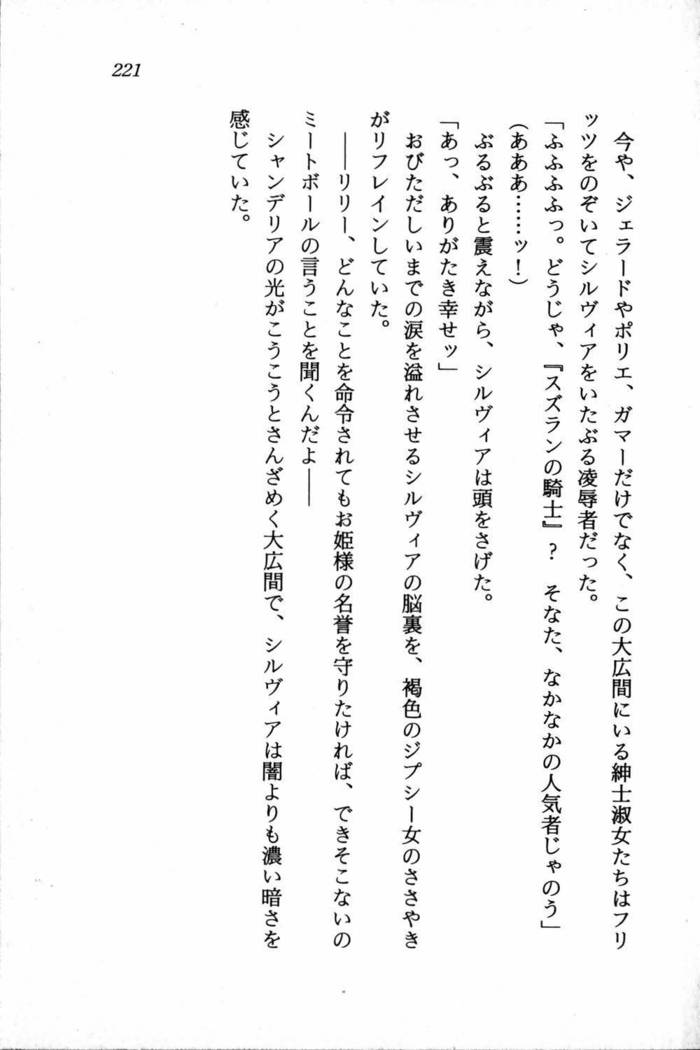 221
今や、ジェラードやポリエ、ガマーだけでなく、この大広間にいる紳士淑女たちはフリ
ッツをのぞいてシルヴィアをいたぶる凌辱者だった。
「ふふふふっ。どうじゃ、『スズランの騎士』? そなた、なかなかの人気者じゃのう」
(あああ……ッ!)
ぶるぶると震えながら、シルヴィアは頭をさげた。
「あっ、ありがたき幸せッ」
おびただしいまでの涙を溢れさせるシルヴィアの脳裏を、褐色のジプシー女のささやき
がリフレインしていた。
――リリー、どんなことを命令されてもお姫様の名誉を守りたければ、できそこないの
ミートボールの言うことを聞くんだよ――
シャンデリアの光がこうこうとさんざめく大広間で、シルヴィアは闇よりも濃い暗さを
感じていた。